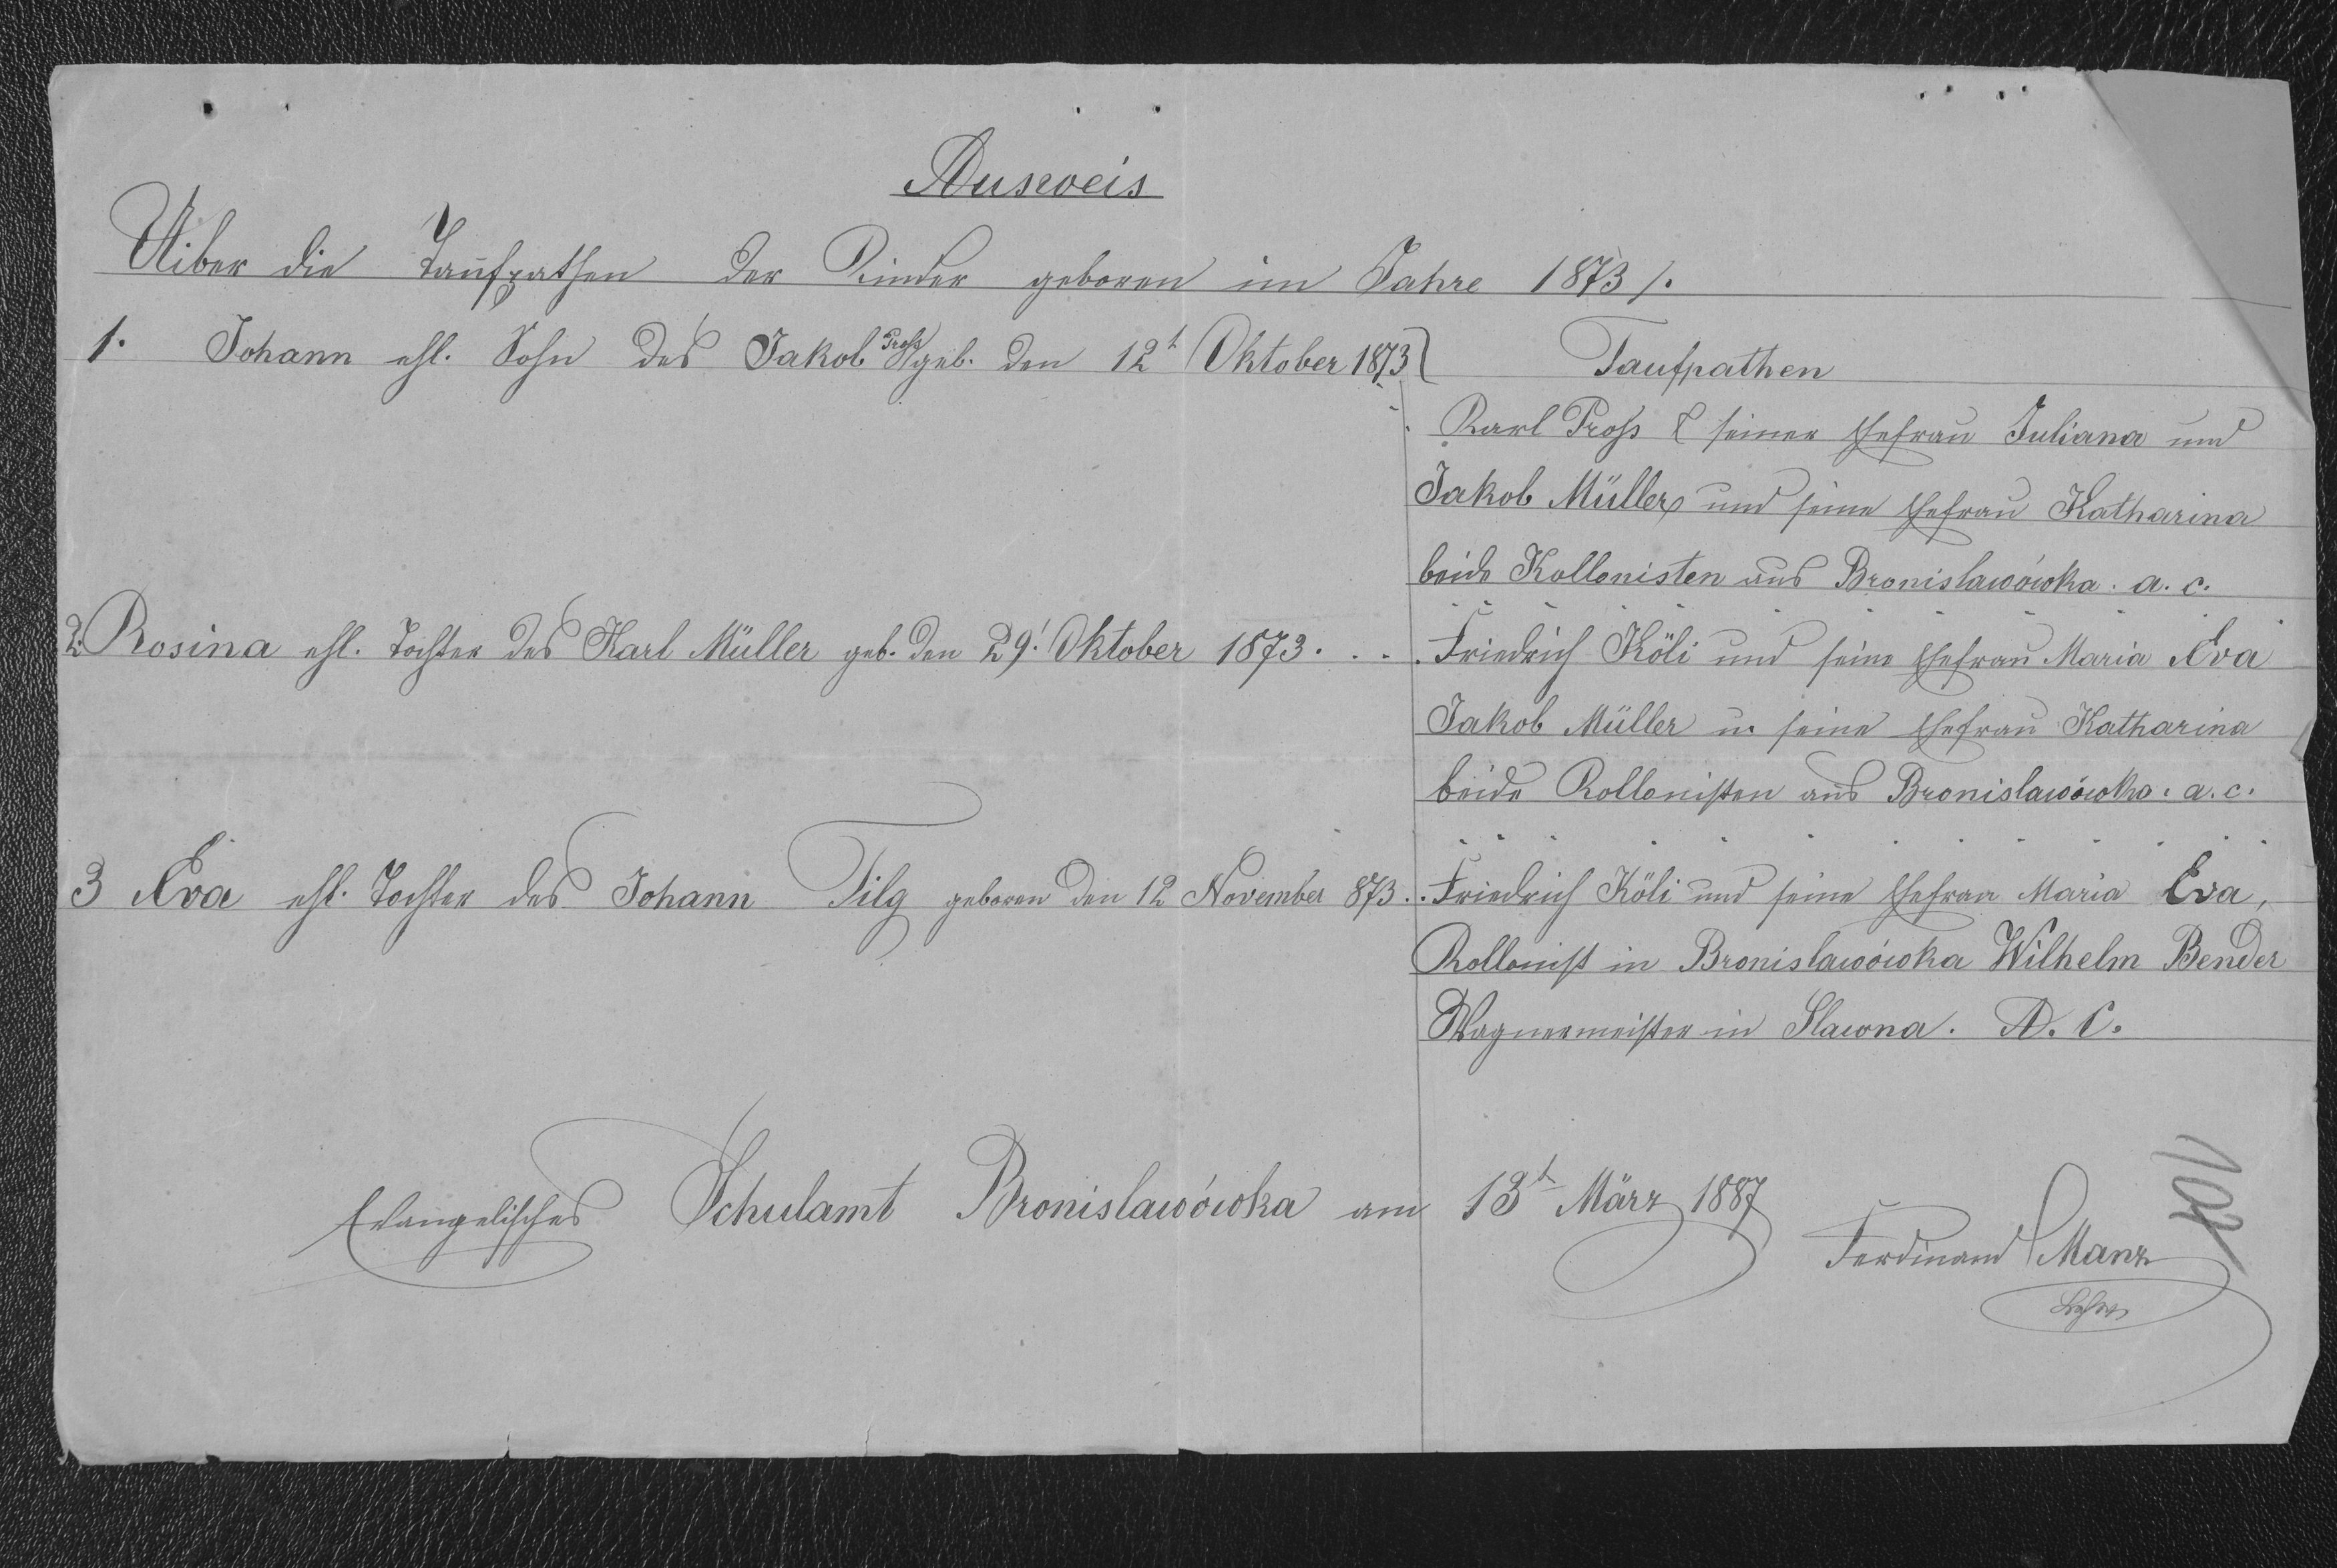 Ausweis
Uiber die Taufpathen der Kinder geboren im Jahre 1873/.
1. Johann ehl. Sohn des Jakob Proß geb. den 12t Oktober 1873
Taufpathen
Karl Proß & seiner Ehefrau Juliana und
Jakob Müller und seine Ehefrau Katharina
beide Kollonisten aus Bronislawówka. a. c.
2. Rosina ehl. Tochter des Karl Müller geb. den 29. Oktober 1873. . . . Friedrich Köli und seine Ehefrau Maria Eva
Jakob Müller u. seine Ehefrau Katharina
beide Kollonisten aus Bronislawówka. a. c.
3 Eva ehl. Tochter des Johann Tilg geboren den 12 November 873. . Friedrich Köli und seine Ehefrau Maria Eva,
Kollonist in Bronislawówka Wilhelm Bender
Wagnermeister in Slawna. A. C.
Evangelisches Schulamt Bronislawówka am 13t März 1887
Ferdinand Manz
Lehrer